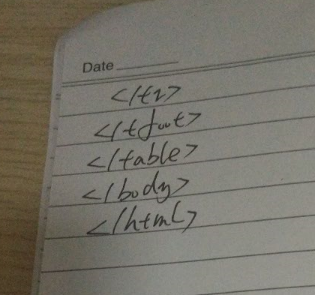 Date
</tr>
</tfoot>
</table>
</body>
</html>